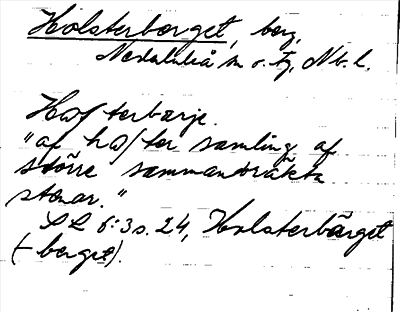 Holsterberget, berg,
Nederluleå sn o. tg, Nb. l.
Hɷlsterbærje.
"af hɷlster samling af
större sammanträkta
stenar."
SL 6:3 s. 24, Holsterbärget
(-berget).